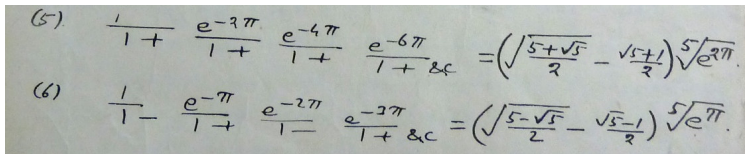 (5). 1/1+ e^{-2π}/1+ e^{-4π}/1+ e^{-6π}/1+ &c = (√((5+√5)/2) - (√5+1)/2) ⁵√(e^{2π}).
(6) 1/1- e^{-π}/1+ e^{-2π}/1- e^{-3π}/1+ &c = (√((5-√5)/2) - (√5-1)/2) ⁵√(e^π).